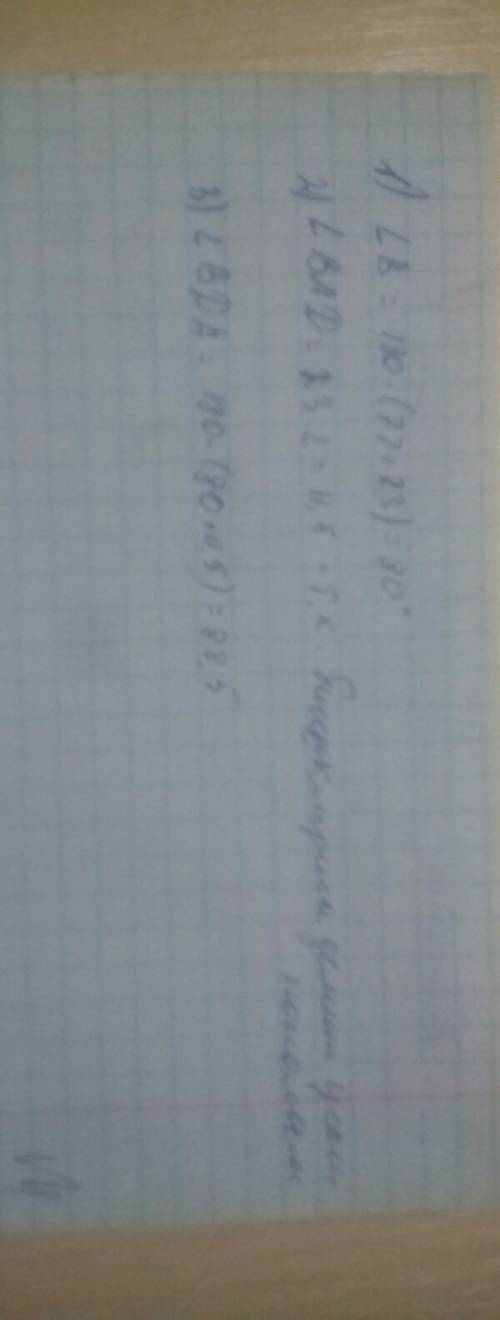 1) ∠B = 180-(77+23) = 80°
2) ∠BAD = 23:2 = 11,5 - т.к. биссектриса делит угол
пополам
3) ∠BDA = 180-(80+11,5) = 88,5